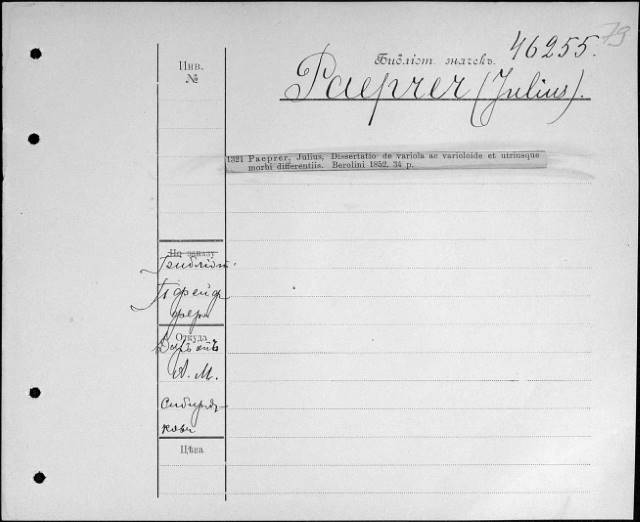 79
Инв.
№
Библіот. значекъ.
46255.
Paeprer (Julius).
1321 Paeprer, Julius, Dissertatio de variola ac varioloide et utriusque
morbi differentiis. Berolini 1852. 34 p.
По заказу
Библіот.
Пфейф
фера
Откуда
Даръ
А. М.
Сибиря
кова
Цѣна